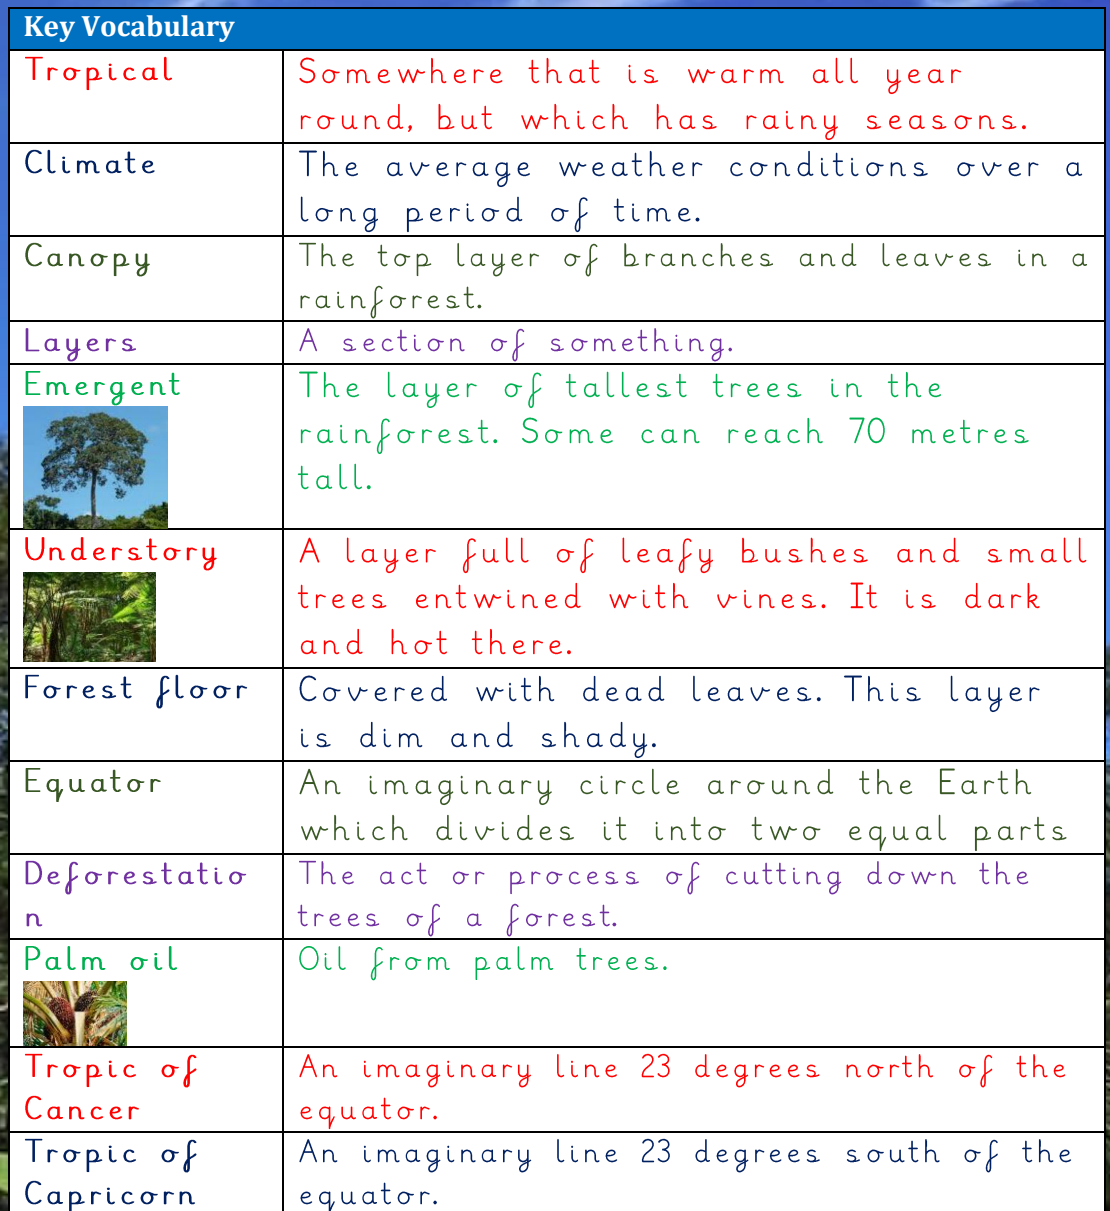 Key Vocabulary
Tropical
Somewhere that is warm all year
round, but which has rainy seasons.
Climate
The average weather conditions over a
long period of time.
Canopy
The top layer of branches and leaves in a
rainforest.
Layers
A section of something.
Emergent
The layer of tallest trees in the
rainforest. Some can reach 70 metres
tall.
Understory
A layer full of leafy bushes and small
trees entwined with vines. It is dark
and hot there.
Forest floor
Covered with dead leaves. This layer
is dim and shady.
Equator
An imaginary circle around the Earth
which divides it into two equal parts
Deforestatio
n
The act or process of cutting down the
trees of a forest.
Palm oil
Oil from palm trees.
Tropic of
Cancer
An imaginary line 23 degrees north of the
equator.
Tropic of
Capricorn
An imaginary line 23 degrees south of the
equator.